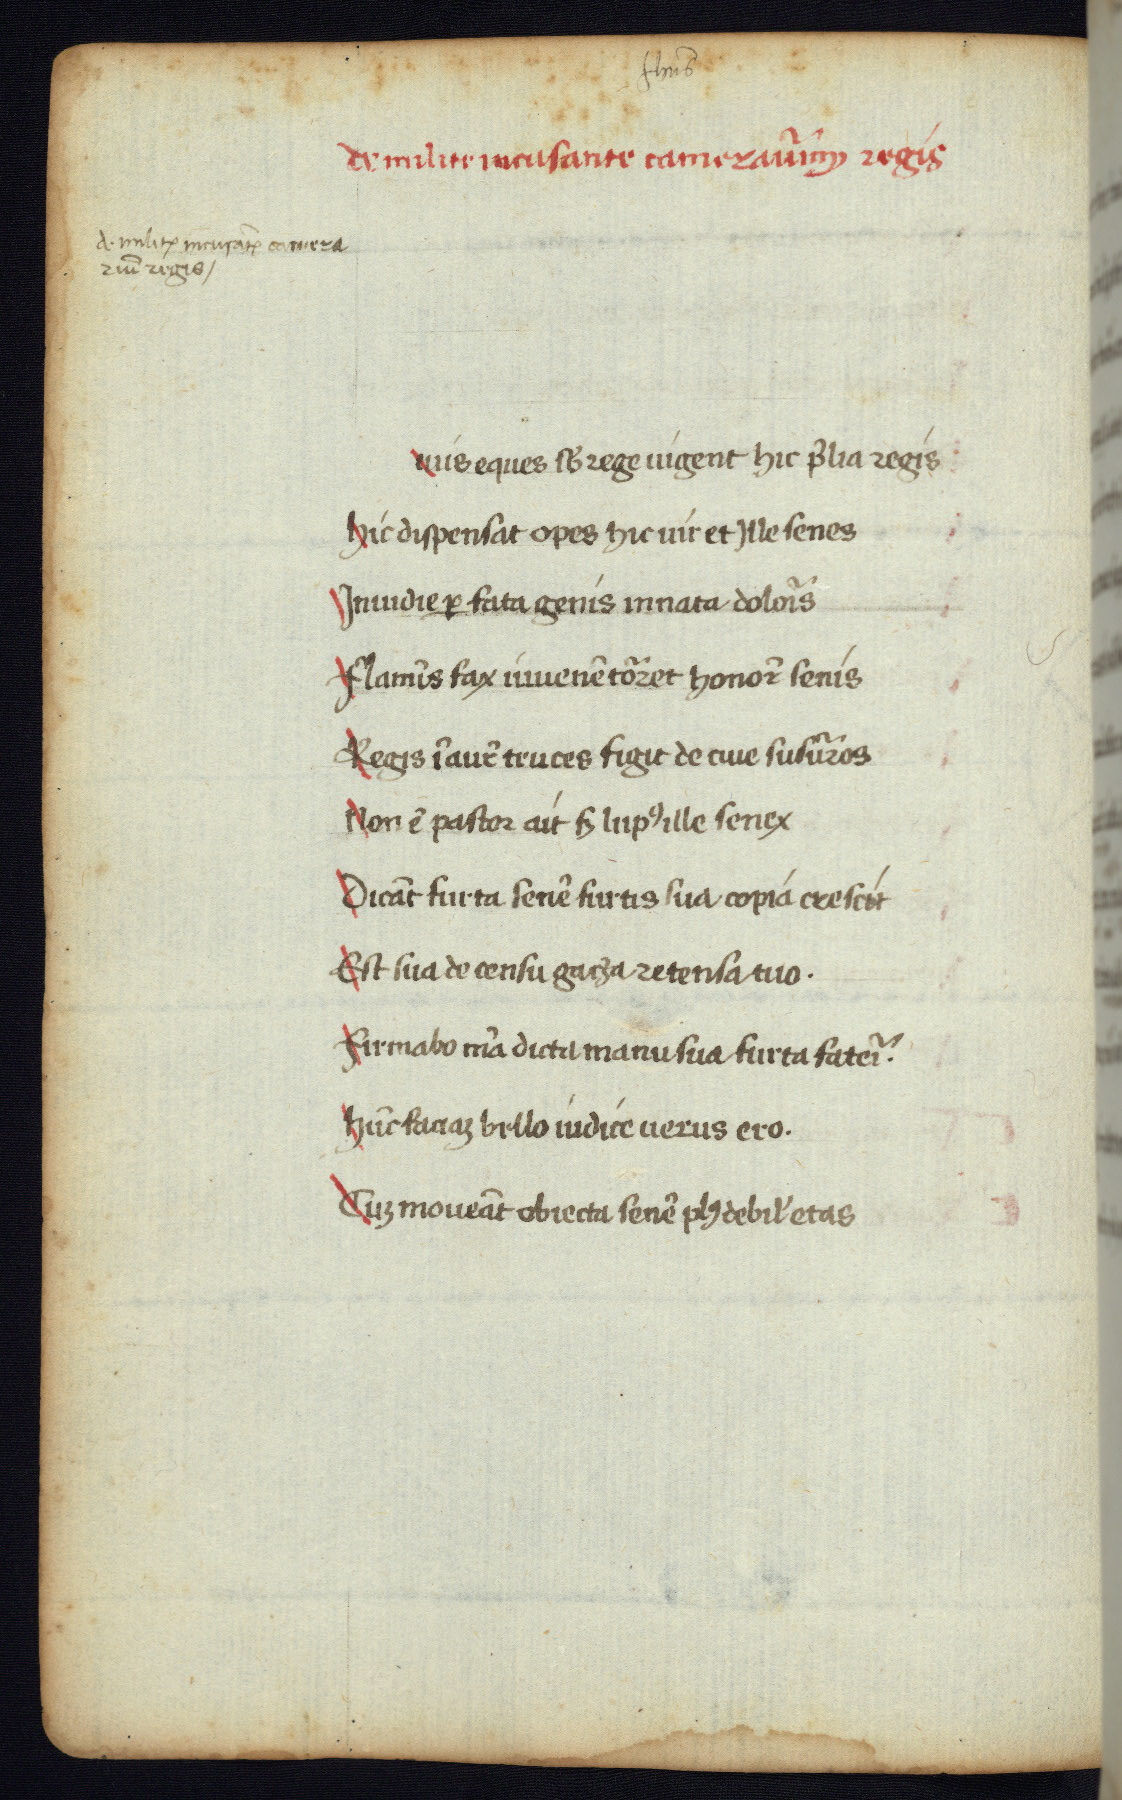 Ihus̄
de milite incusante camerariū regis
d. milit̄ incusāt̄ camera
riū regis/
uis eques sb̄ rege uigent hic p̄lia regis
hic dispensat opes hic uir et Ille senes
Inuidie ꝑ fata genis innata dolor̄s
Flam̄s fax iuuenē tōret honor̄ senis
Regis ī aur̄ truces figit de ciue susūros
Non ē pastor ait sꝫ lupꝰ ille senex
Dicāt furta senē furtis sua copia crescit
Est sua de censu gaza retensa tuo.
Firmabo m̄a dicta manu sua furta fater̄.
hūc faciaꝫ bello iudice uerus ero.
Cuꝫ moueāt obiecta senē pꝰ debil' etas